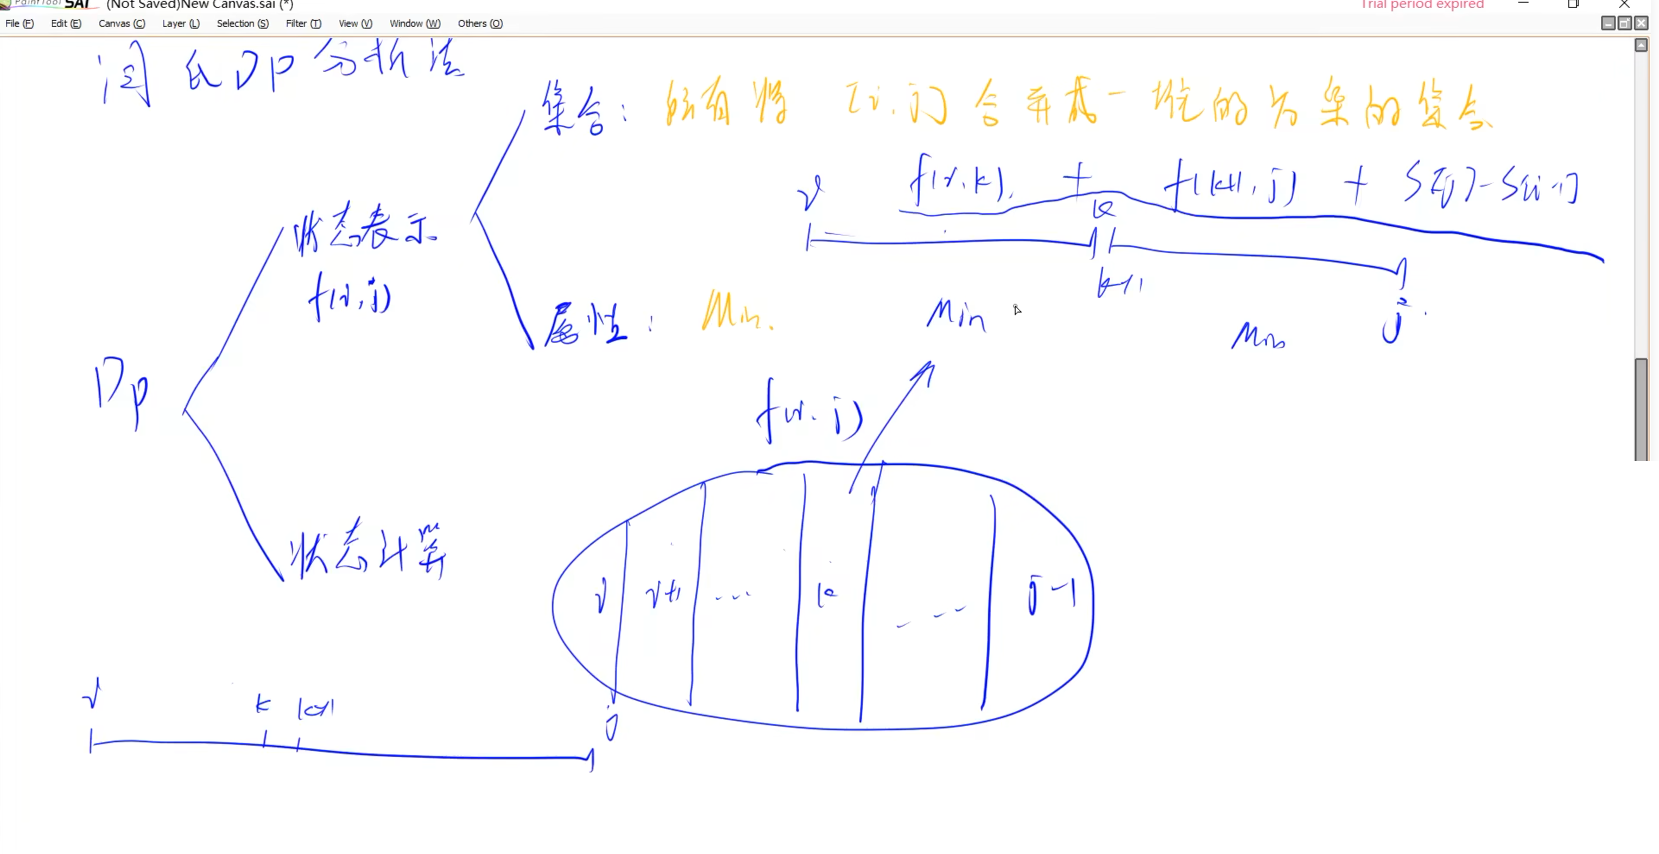 PaintTool SAI (Not Saved)New Canvas.sai (*) Trial period expired
File (F) Edit (E) Canvas (C) Layer (L) Selection (S) Filter (T) View (V) Window (W) Others (O)
闫氏DP分析法
集合: 所有将 [i,j] 合并成一堆的方案的集合
f(i,k) + f(k+1,j) + S[j]-S[i-1]
i k
k+1
j
状态表示
f(i,j)
属性: Min.
Min
Min
DP
f(i,j)
状态计算
i i+1 ... k ... j-1
i k k+1 j